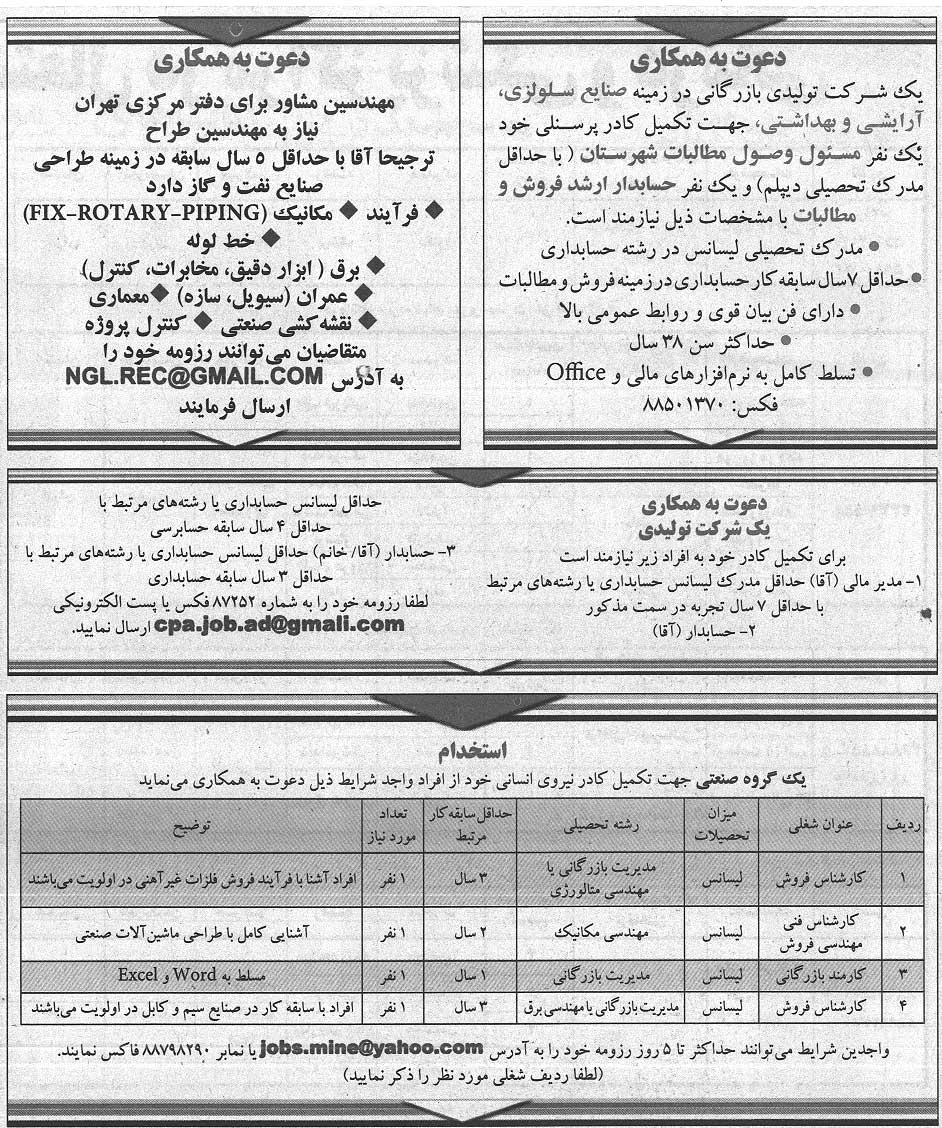 دعوت به همکاری
یک شرکت تولیدی بازرگانی در زمینه صنایع سلولزی،
آرایشی و بهداشتی، جهت تکمیل کادر پرسنلی خود
یک نفر مسئول وصول مطالبات شهرستان ( با حداقل
مدرک تحصیلی دیپلم) و یک نفر حسابدار ارشد فروش و
مطالبات با مشخصات ذیل نیازمند است.
● مدرک تحصیلی لیسانس در رشته حسابداری
● حداقل ۷ سال سابقه کار حسابداری در زمینه فروش و مطالبات
● دارای فن بیان قوی و روابط عمومی بالا
● حداکثر سن ۳۸ سال
● تسلط کامل به نرم‌افزارهای مالی و Office
فکس: ۸۸۵۰۱۳۷۰
دعوت به همکاری
مهندسین مشاور برای دفتر مرکزی تهران
نیاز به مهندسین طراح
ترجیحا آقا با حداقل ۵ سال سابقه در زمینه طراحی
صنایع نفت و گاز دارد
◆ فرآیند ◆ مکانیک (FIX-ROTARY-PIPING)
◆ خط لوله
◆ برق ( ابزار دقیق، مخابرات، کنترل)
◆ عمران (سیویل، سازه) ◆ معماری
◆ نقشه‌کشی صنعتی ◆ کنترل پروژه
متقاضیان می‌توانند رزومه خود را
به آدرس NGL.REC@GMAIL.COM
ارسال فرمایند
دعوت به همکاری
یک شرکت تولیدی
برای تکمیل کادر خود به افراد زیر نیازمند است
۱- مدیر مالی (آقا) حداقل مدرک لیسانس حسابداری یا رشته‌های مرتبط
با حداقل ۷ سال تجربه در سمت مذکور
۲- حسابدار (آقا)
حداقل لیسانس حسابداری یا رشته‌های مرتبط با
حداقل ۴ سال سابقه حسابرسی
۳- حسابدار (آقا/ خانم) حداقل لیسانس حسابداری یا رشته‌های مرتبط با
حداقل ۳ سال سابقه حسابداری
لطفا رزومه خود را به شماره ۸۷۲۵۲ فکس یا پست الکترونیکی
cpa.job.ad@gmali.com ارسال نمایید.
استخدام
یک گروه صنعتی جهت تکمیل کادر نیروی انسانی خود از افراد واجد شرایط ذیل دعوت به همکاری می‌نماید
ردیف عنوان شغلی میزان تحصیلات رشته تحصیلی حداقل سابقه کار مرتبط تعداد مورد نیاز توضیح
۱ کارشناس فروش لیسانس مدیریت بازرگانی یا مهندسی متالورژی ۳ سال ۱ نفر افراد آشنا با فرآیند فروش فلزات غیرآهنی در اولویت می‌باشند
۲ کارشناس فنی مهندسی فروش لیسانس مهندسی مکانیک ۲ سال ۱ نفر آشنایی کامل با طراحی ماشین‌آلات صنعتی
۳ کارمند بازرگانی لیسانس مدیریت بازرگانی ۱ سال ۱ نفر مسلط به Word و Excel
۴ کارشناس فروش لیسانس مدیریت بازرگانی یا مهندسی برق ۳ سال ۱ نفر افراد با سابقه کار در صنایع سیم و کابل در اولویت می‌باشند
واجدین شرایط می‌توانند حداکثر تا ۵ روز رزومه خود را به آدرس jobs.mine@yahoo.com یا نمابر ۸۸۷۹۸۲۹۰ فاکس نمایند.
(لطفا ردیف شغلی مورد نظر را ذکر نمایید)